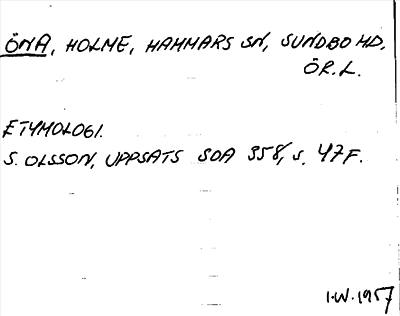 ÖNA, HOLME, HAMMARS SN, SUNDBO HD,
ÖR.L.
ETYMOLOGI.
S. OLSSON, UPPSATS SOA 358, S. 47F.
I.W.1957